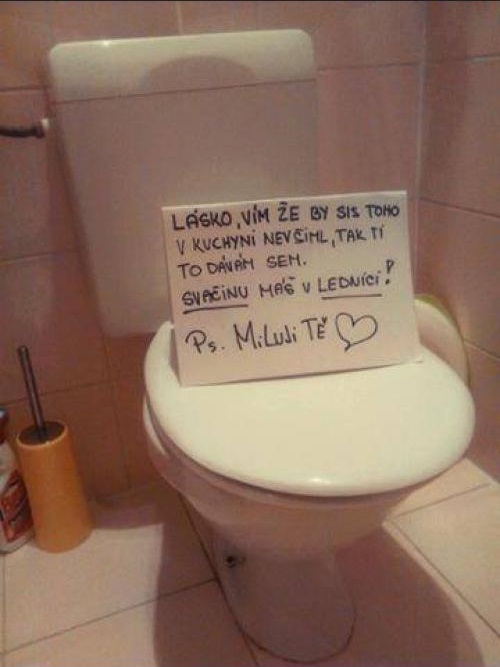 LÁSKO, VÍM ŽE BY SIS TOHO
V KUCHYNI NEVŠIML, TAK TI
TO DÁVÁM SEM.
SVAČINU MÁŠ V LEDNICI!
Ps. MiLUJi TĚ